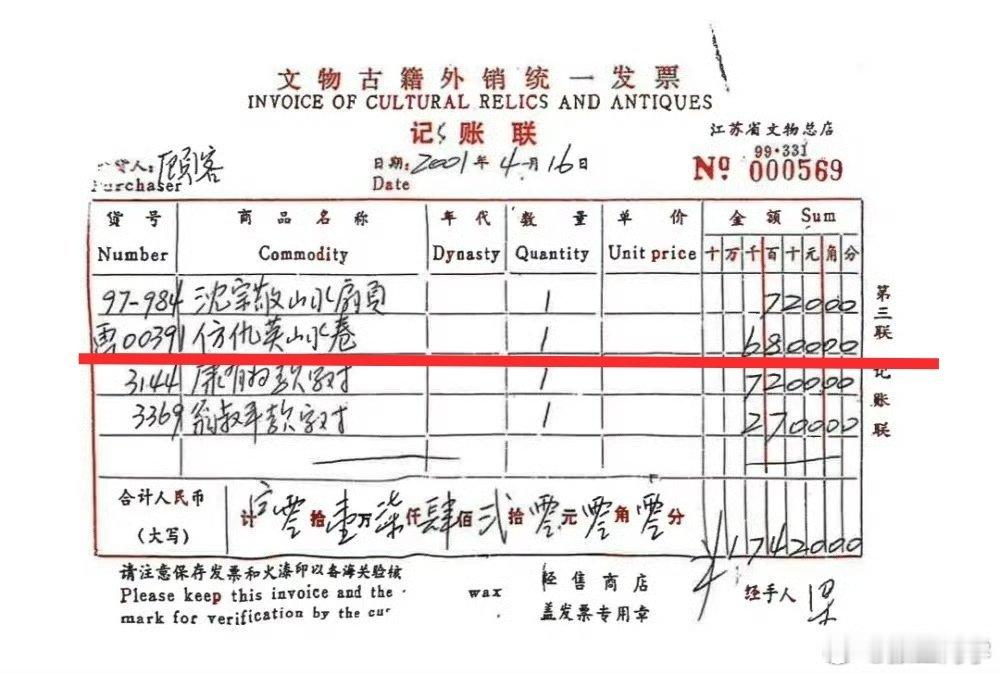 文物古籍外销统一发票
INVOICE OF CULTURAL RELICS AND ANTIQUES
记账联
江苏省文物总店
99·331
货人：顾客
Purchaser
日期：2001年4月16日
Date
Nº 000569
货号 商品名称 年代 数量 单价 金额 Sum
Number Commodity Dynasty Quantity Unit price 十万千百十元角分
97-984 沈宗敬山水扇页 1 720000
00391 仿仇英山水卷 1 680000
3144 款字对 1 720000
3369 翁叔平款字对 1 270000
第三联
记账联
合计人民币
(大写)
计 零拾壹万柒仟肆佰贰拾零元零角零分 ¥1742000
请注意保存发票和火漆印以备海关验核
Please keep this invoice and the wax
mark for verification by the cu
经售商店
盖发票专用章
经手人